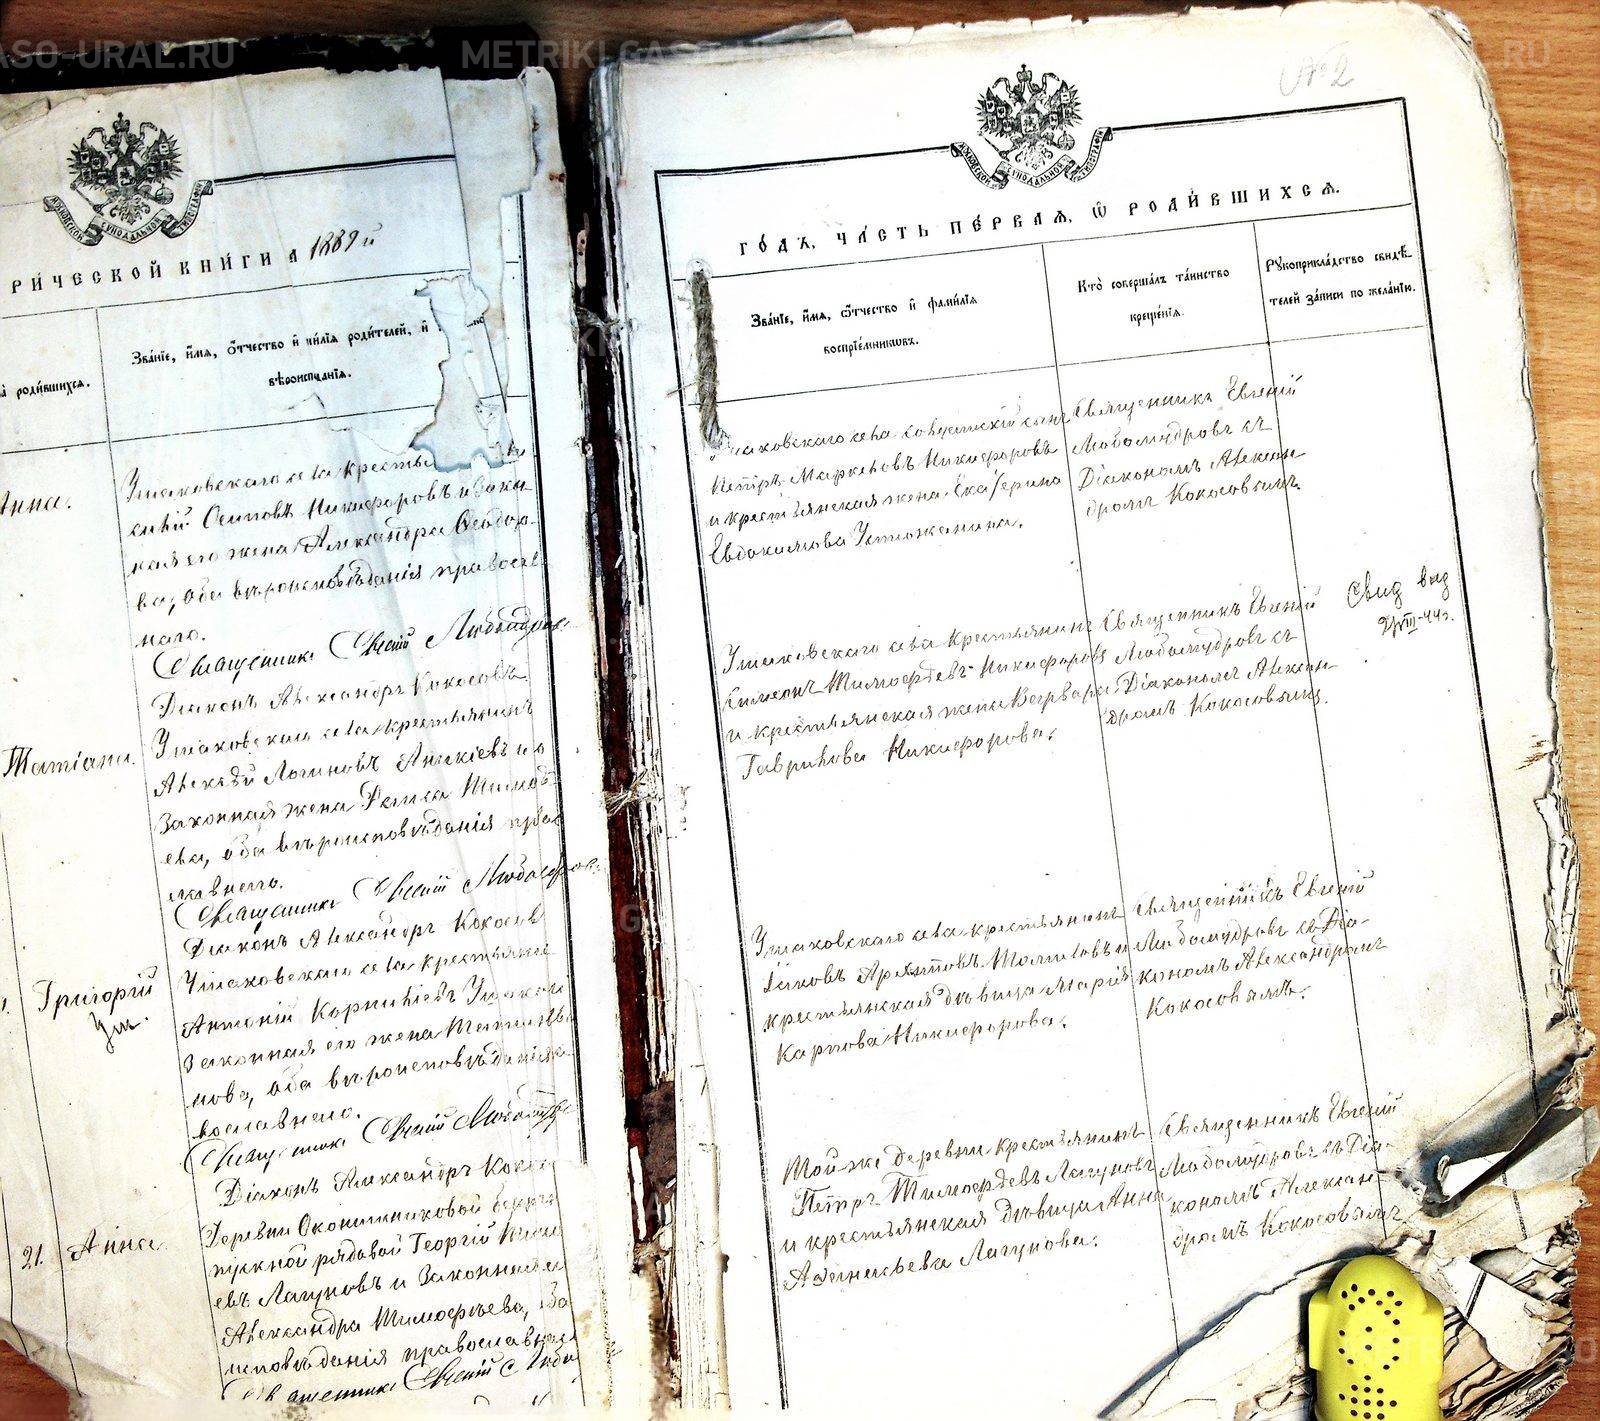 METRIKI.GASO-URAL.RU
№2
МОСКОВСКОЙ СѴНОДАЛЬНОЙ ТИПОГРАФІИ
РИ́ЧЕСКОЙ КНИ́ГИ А 1889 й
родившихся.
Зва́нїе, и҆́мѧ, ѻ҆́тчество и҆ роди́телей, и҆
вѣроисповѣданїѧ.
Анна.
Ушаковскаго села кресть
Осиповъ Никифоровъ и закон
ная его жена Александра Ѳеодор
ва, оба вѣроисповѣданія православ
наго.
Священникъ Евгеній Любомудровъ
Діаконъ Александръ Кокосовъ
Татіана.
Ушаковскаго села крестьянинъ
Алексѣй Логиновъ Аникіевъ и
законная жена Тимоѳ
ева, оба вѣроисповѣданія право
славнаго.
Священникъ Евгеній Любомудровъ
Діаконъ Александръ Кокосовъ
Григорій
ум.
Ушаковскаго села крестьянин
Антоній Корниліевъ Ушаков
законная его жена
нова, оба вѣроисповѣданія
вославнаго.
Священникъ Евгеній Любомудров
Діаконъ Александръ Коко
21. Анна.
Деревни Оконишниковой
пускной рядовой Георгій Тимо
евъ Лагуновъ и законная
Александра Тимоѳеева,
исповѣданія православнаго
Священникъ Евгеній Любо
ГО́ДЪ, ЧА́СТЬ ПЕ́РВАѦ, Ѽ РОДИ́ВШИХСѦ.
Зва́нїе, и҆́мѧ, ѻ҆́тчество и҆ фами́лїѧ
воспрїе́мниковъ.
Кто̀ соверша́лъ та́инство
креще́нїѧ.
Рꙋкоприкла́дство свидѣ́-
телей за́писи по жела́нїю.
Ушаковскаго села солдатскій сынъ
Петръ Маркеловъ Никифоровъ
и крестьянская жена Екатерина
Евдокимова Устюжанина.
Священникъ Евгеній
Любомудровъ съ
Діакономъ Алексан-
дромъ Кокосовымъ.
Ушаковскаго села крестьянинъ
Симеонъ Тимоѳеевъ Никифоровъ
и крестьянская жена Варвара
Гаврилова Никифорова.
Священникъ Евгеній
Любомудровъ съ
Діакономъ Алексан-
дромъ Кокосовымъ.
Свид выд
2/VIII-44г.
Ушаковскаго села крестьянинъ
Іаковъ Архиповъ и
крестьянская дѣвица Марія
Карпова Никифорова.
Священникъ Евгеній
Любомудровъ съ Діа-
кономъ Александромъ
Кокосовымъ.
Той-же деревни крестьянинъ
Петръ Тимоѳеевъ Лагуновъ
и крестьянская дѣвица Анна
Лагунова.
Священникъ Евгеній
Любомудровъ съ Діа-
кономъ Алексан-
дромъ Кокосовымъ